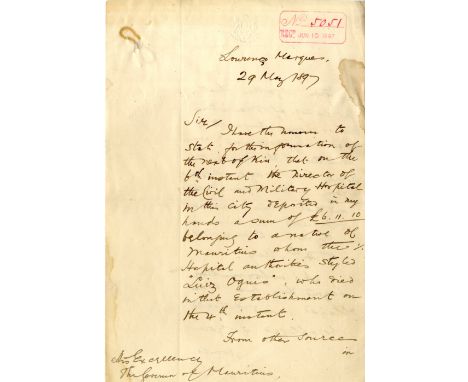 No 5051
REC. JUN 10 1897
Lourenço Marques.
29 May 1897
Sir/
I have the honour to
state for the information of
the next of kin, that on the
6th instant the Director of
the Civil and Military Hospital
in this city deposited in my
hands a sum of £6.11.10
belonging to a native of
Mauritius whom the
Hospital authorities styled
"Luiz Ogues", who died
in that Establishment on
the 4th instant.
From other sources
in
His Excellency
The Governor of Mauritius,